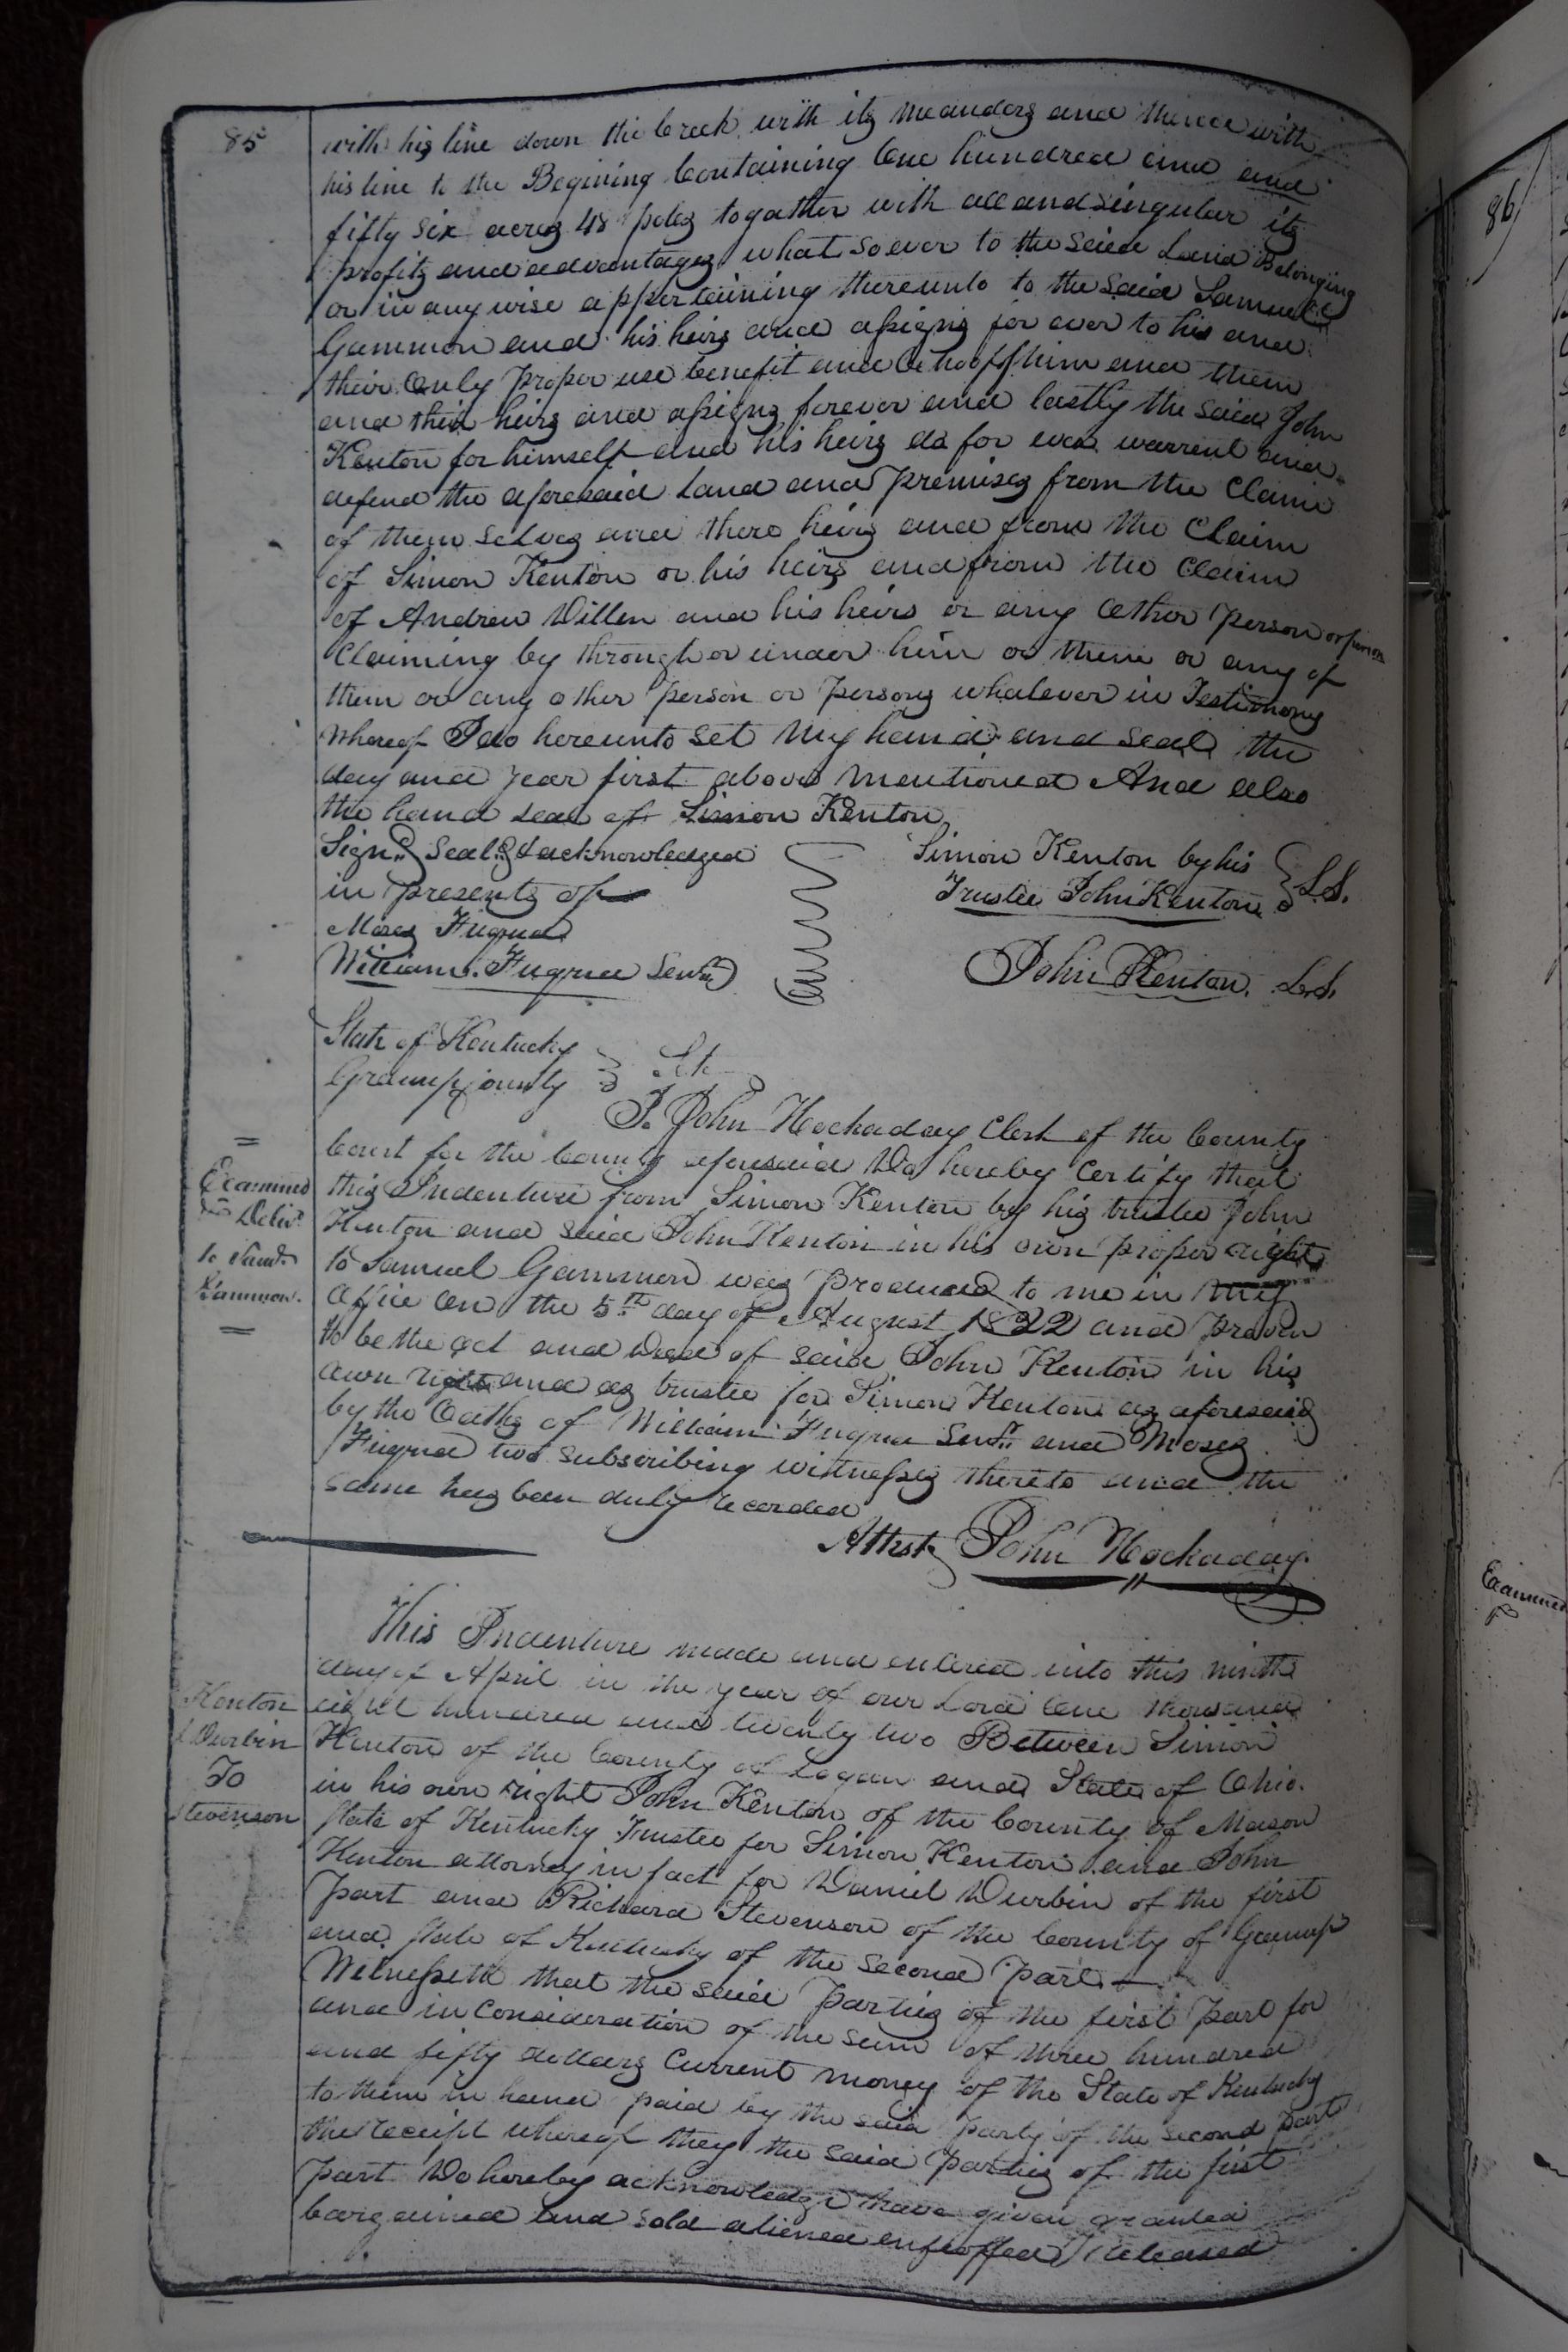 85
with his line down the Creek with its meanders and thence with
his line to the Begining Containing One hundred and and
fifty six acres 48 poles togather with all and singular its
profits and advantages what so ever to the said Land Belonging
or in any wise appertaining thereunto to the said Samuel
Gammon and his heirs and assigns for ever to his and
their Only proper use benefit and behooff him and them
and their heirs and assigns forever and lastly the said John
Kenton for himself and his heirs do for ever warrent and
defend the aforesaid Land and Premises from the Claim
of them selves and there heirs and from the Claim
of Simon Kenton or his heirs and from the Claim
of Andrew Willen and his heirs or any Other Person or persons
Claiming by through or under him or them or any of
them or any other person or Persons whatever in Testimony
whereof I do hereunto set my hand and seal the
day and year first above mentioned And also
the hand seal of Simon Kenton
Signd Seald & acknowledged
in presents of
Moses Fuqua
William Fuqua Senr
Simon Kenton by his
Trustee John Kenton L.S.
John Kenton. L.S.
State of Kentucky
Greenup County Sct
I. John Hockaday Clerk of the County
Court for the County aforesaid Do hereby Certify that
this Indenture from Simon Kenton by his trustee John
Kenton and said John Kenton in his own proper right
to Samuel Gammon was Produced to me in my
Office On the 5th day of August 1822 and proven
to be the act and Deed of said John Kenton in his
own right and as trustee for Simon Kenton as aforesaid
by the Oaths of William Fuqua Senr and Moses
Fuqua two subscribing witnesses thereto and the
same has been duly recorded
Attest John Hockaday
Examined
Delivd
to Saml
Gammon.
This Indenture made and entered into this ninth
day of April in the year of our Lord One thousand
eight hundred and twenty two Between Simon
Kenton of the County of Logan and State of Ohio.
in his own right John Kenton of the County of Mason
State of Kentucky Trustee for Simon Kenton and John
Kenton attorney in fact for Daniel Durbin of the first
part and Richard Stevenson of the County of Greenup
and State of Kentucky of the second part
Witnesseth that the said Parties of the first Part for
and in Consideration of the sum of three hundred
and fifty dollars Current money of the State of Kentucky
to them in hand paid by the said party of the second part
the receipt whereof they the said Parties of the first
part Do hereby acknowledge have given granted
bargained and sold aliened enfeoffed released
Kenton
& Durbin
To
Stevenson
86
Examined